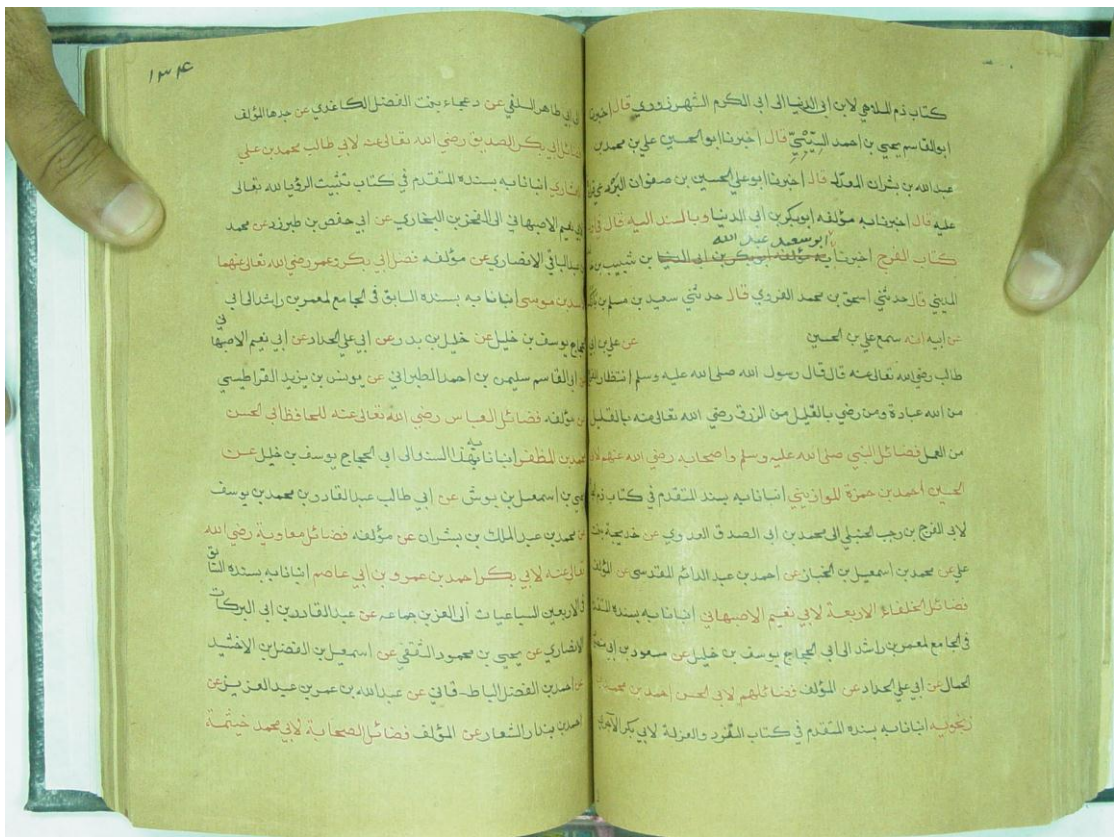 كتاب ذم الملاهي لابن ابي الدنيا الى ابي الكرم الشهرزوري قال اخبرنا
ابوالقاسم يحيى بن احمد السِّيْبِيّ قال اخبرنا ابو الحسين علي بن محمد بن
عبدالله بن بشران المعدّل قال اخبرنا ابوعلي الحسين بن صفوان البرذعي
عليه قال اخبرنا به مؤلفه ابوبكر بن ابي الدنيا وبالسند اليه قال في
ابوسعيد عبد الله
كتاب الفرج اخبرنا به مؤلفه ابوبكر بن ابي الدنيا بن شبيب بن
المديني قال حدثني اسحق بن محمد الفروي قال حدثني سعيد بن مسلم بن بانك
عن ابيه انه سمع علي بن الحسين عن علي بن ابي
طالب رضي الله تعالى عنه قال قال رسول الله صلى الله عليه وسلم انتظار الفرج
من الله عبادة ومن رضي بالقليل من الرزق رضي الله تعالى منه بالقليل
من العمل فضائل النبي صلى الله عليه وسلم واصحابه رضي الله عنهم لابي
الحسين احمد بن حمزة الموازيني انبانا به بسند المتقدم في كتاب ذم
لابي الفرج بن رجب الحنبلي الى محمد بن ابي الصدق العدوي عن خديجة بنت
علي عن محمد بن اسمعيل بن الخباز عن احمد بن عبد الدائم المقدسي عن المؤلف
فضائل الخلفاء الاربعة لابي نعيم الاصبهاني انبانا به بسنده المتقدم
في الجامع لمعمر بن راشد الى ابي الحجاج يوسف بن خليل عن مسعود بن ابي منصور
الجمال عن ابي علي الحداد عن المؤلف فضائلهم لابي الحسن احمد بن محمد بن
زنجويه انبانا به بسنده المتقدم في كتاب التفرد والعزلة لابي بكر الآجري
١٣٤
الى ابي طاهر السلفي عن دعجاء بنت الفضل الكاغدي عن جدها المؤلف
فضائل ابي بكر الصديق رضي الله تعالى عنه لابي طالب محمد بن علي
العشاري انبانا به بسنده المتقدم في كتاب تثبيت الرؤيا لله تعالى
لابي نعيم الاصبهاني الى الفخر بن البخاري عن ابي حفص بن طبرزد عن محمد
بن عبدالباقي الانصاري عن مؤلفه فضل ابي بكر وعمر رضي الله تعالى عنهما
لاسد بن موسى انبانا به بسنده السابق في الجامع لمعمر بن راشد الى ابي
الحجاج يوسف بن خليل عن خليل بن بدر عن ابي علي الحداد عن ابي نعيم الاصبهاني
عن ابي القاسم سليمن بن احمد الطبراني عن يونس بن يزيد القراطيسي
عن مؤلفه فضائل العباس رضي الله تعالى عنه للحافظ ابي الحسن
محمد بن المظفر انبانا به بهذا السند والى ابي الحجاج يوسف بن خليل عن
يحيى بن اسمعيل بن بوش عن ابي طالب عبدالقادر بن محمد بن يوسف
عن محمد بن عبد الملك بن بشران عن مؤلفه فضائل معاوية رضي الله
تعالى عنه لابي بكر احمد بن عمرو بن ابي عاصم انبانا به بسنده السابق
في الاربعين السباعيات الى العز بن جماعه عن عبدالقادر بن ابي البركات
الانصاري عن يحيى بن محمود الثقفي عن اسمعيل بن الفضل بن الاخشيد
عن احمد بن الفضل الباطرقاني عن عبدالله بن عمر بن عبدالعزيز عن
احمد بن بندار الشعار عن المؤلف فضائل الصحابة لابي محمد خيثمة